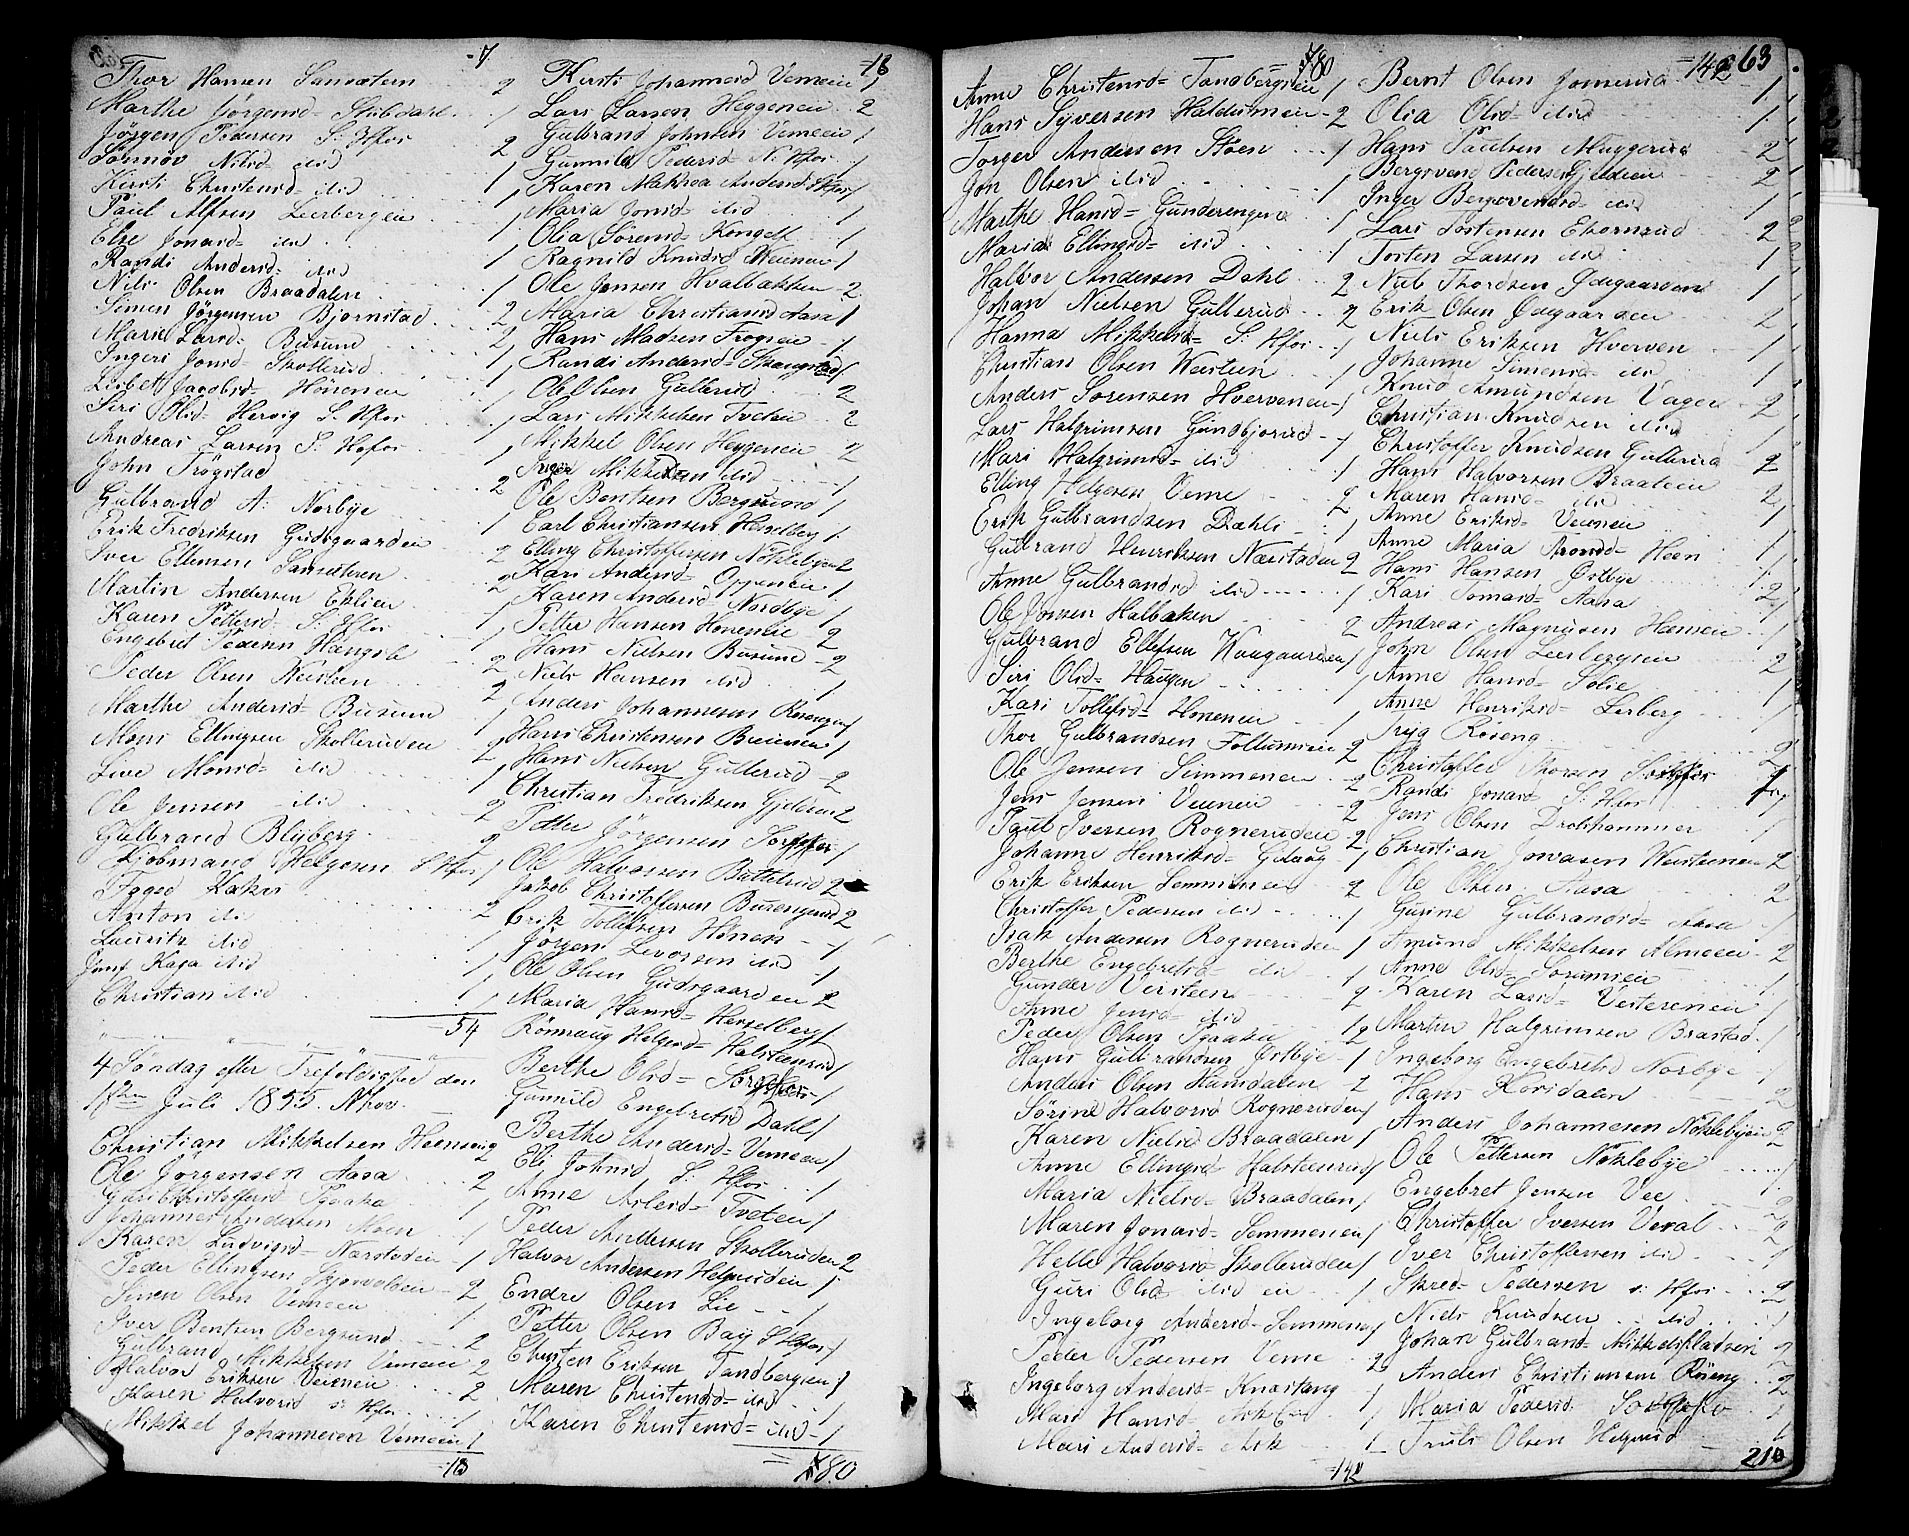 -7
Thor Hansen Sansætern 2
Marthe Jörgensd= Stubdahl 1
Jörgen Pedersen S: Hfos 2
Nilsd= ibid 1
Kirsti Christensd= ibid 1
Paul Alfsen Leerbergen 1
Else Jonasd= ibid 1
Randi Andersd= ibid 1
Nils Olsen Braadalen 1
Simen Jörgensen Bjornstad 2
Marie Larsd= Busund 2
Ingeri Jonsd= Skollerud 1
Lisbet Jacobsd= Hönenen 1
Siri Olsd= Hervig S. Hfos 1
Andreas Larsen S: Hofos 1
John Trögstad 2
Gulbrand A: Norbye 1
Erik Fredriksen Gudsgaarden 2
Iver Ellensen Sansæteren 2
Martin Andersen Eklien 1
Karen Pettersd= S: Hfos 1
Engebret Pedersen Hængsle 2
Peder Olsen Weisteen 2
Marthe Andersd= Busund 1
Mons Ellingsen Skolleruden 2
Live Monsd= ibid 1
Ole Jensen ibid 2
Gulbrand Bliberg 2
Kjobmand Helgesen S Hfos 1
Foged Kaks 2
Anton ibid 1
Lauritz ibid 1
Kaja ibid 1
Christian ibid 1
54
4 Söndag efter Trefoldighed den
1ste Juli 1855. Nhov.
Christian Mikkelsen Heenseng 2
Ole Jörgensen Aasa 2
Guri Christoffersd Tpaaka 1
Johannes Andersen Moen 1
Karen Ludvigsd= Næristaden 1
Peder Ellingsen Skjorvolden 2
Simen Olsen Vemeen 1
Iver Bentsen Bergsund 2
Gulbrand Mikkelsen Vemeen 2
Halvor Eriksen Veienen 2
Karen Halvorsd s: Hfos 1
Mikkel Johannesen Vemeen 1
-18
-18
Kirsti Johannesd Vemeen 1
Lars Larsen Heggenen 2
Gulbrand Johnsen Vemeen 1
Gunnild Pedersd= N: Hfos 1
Karen Mathea Andersd Hfos 1
Maria Jonsd= ibid 1
Olia Sörensd= Kongelf 1
Ragnild Knudsd Veienen 1
Ole Jensen Hvalbakken 2
Maria Christiansd Aasa 1
Hans Madsen Frogsen 1
Randi Andersd= Skaugstad 1
Ole Olsen Gullerud 2
Lars Mikkelsen Tveten 2
Mikkel Olsen Heggenen 2
Inger Mikkelsen ibid 1
Ole Bentsen Bergsund 1
Carl Christiansen Hesselberg 1
Elling Christoffersen Nöklebyen 2
Kari Andersd= Oppenen 1
Karen Andersd= Nordbye 1
Petter Hansen Honenen 2
Hans Nielsen Busund 2
Niels Hansen ibid 1
Anders Johannesen Rosengen 1
Hans Christensen Breienen 1
Hans Nielsen Gullerud 2
Christian Fredriksen Gjelden 2
Petter Jörgensen Sorgfos 1
Ole Halvorsen Buttelsrud 2
Jakob Christoffersen Burengsrud 2
Erik Tollefsen Hönen 1
Jörgen Levorsen ibid 1
Ole Olsen Gudsgaarden 2
Maria Hansd= Hesselberg 1
Rönnaug Helgesd= Halsteensrud 1
Berthe Olsd= Sorgfos 1
Gunnild Engebretsd Dahl 1
Berthe Andersd= Vemeen 1
Eli Johnsd S: Hfos 1
Anne Aslesd= Tveten 1
Peder Andersen Skolleruden 2
Halvor Andersen Helgeruden 1
Endre Olsen Lie 1
Petter Olsen Bay S Hfos 1
Christen Eriksen Tandbergsen 1
Maren Christensd= ibid 1
Karen Christensd= ibid 1
= 80
= 80
Anne Christensd= Tandbergsen 1
Hans Syversen Haldersmoen 2
Torger Andersen Støen 1
Jon Olsen ibid 1
Marthe Hansd= Gunderengen 1
Maria Ellingsd= ibid 1
Halvor Andersen Dahl 2
Johan Nielsen Gullerud 2
Hanna Mikkelsd= S: Hfos 1
Christian Olsen Weisteen 1
Anders Sorensen Hvervenen 1
Lars Halgrimsen Gundbjorud 1
Mari Halgrimsd= ibid 1
Elling Helgesen Veme 2
Erik Gulbrandsen Dæhli 1
Gulbrand Henriksen Næristaden 2
Anne Gulbrandsd ibid 1
Ole Jonsen Halbakken 2
Gulbrand Ellefsen Kongaarden 1
Siri Olsd= Haugen 1
Kari Tollefsd= Honenen 1
Thor Gulbrandsen Follumsen 2
Ole Jensen Semmenen 2
Jens Jensen Veienen 2
Paul Iversen Rogneruden 2
Johanne Henriksd= Gihaug 1
Erik Eriksen Semmenen 2
Christoffer Pedersen ibid 1
Isak Andersen Rogneruden 1
Berthe Engebretsd= ibid 1
Gunder Versteen 2
Anne Jensd= ibid 1
Peder Olsen Tpaaka 2
Hans Gulbrandsen Østbye 1
Anders Olsen Hamdalen 2
Sörine Halvorsd Rogneruden 1
Karen Nielsd Braadalen 1
Anne Ellingsd Halsteensrud 1
Maria Nielsd= Braadalen 1
Maren Jonasd= Semmenen 1
Helle Halvorsd= Skolleruden 1
Guri Olsd ibid en 1
Ingeborg Andersd= Semmenen 1
Peder Pedersen Veme 2
Ingeborg Andersd= Knæstang 1
Mari Hansd= Ask 1
Mari Andersd= Ask 1
-142
-142 63
Bernt Olsen Jonserud 1
Olia Olsd= ibid 1
Hans Paulsen Muggerud 2
Bergsvend Pedersen Gjelden 2
Inger Bergsvendsd= ibid 1
Lars Tostensen Ekornrud 2
Torsten Larsen ibid 1
Niels Thordsen Ødegaarden 1
Erik Olsen Ødegaarden 2
Niels Eriksen Hverven 1
Johanne Simensd= ibid 1
Knud Amundsen Vager 2
Christian Knudsen ibid 1
Christoffer Knudsen Gullerud 2
Hans Halvorsen Braaten 2
Maren Hansd= ibid 1
Anne Eriksd= Veienen 1
Anne Maria Aronsd= Heen 1
Hans Hansen Østbye 2
Kari Tomasd= Aasa 1
Andreas Magnusen Hænsen 1
John Olsen Leerbergsen 2
Anne Hansd= Solie 1
Anne Henriksd= Lerberg 1
Tryg Röseng 2
Christoffer Thorsen Sorgfos 1
Randi Jonasd= S: Hfos 1
Jens Olsen Drolshammer 1
Christian Jonasen Weisteenen 2
Ole Olsen Aasa 2
Gurine Gulbrandsd= Aasa 1
Amund Mikkelsen Almeen 2
Anne Olsd= Sorumsen 1
Karen Larsd= Vesterenen 1
Martin Halgrimsen Braastad 1
Ingeborg Engebretsd Norbye 1
Hans Korsdalen 2
Anders Johannesen Noklebyen 2
Ole Pettersen Noklebye 1
Engebret Jensen Vee 2
Christoffer Iversen Veral 2
Iver Christoffersen ibid 1
Skred= Pedersen s: Hfos 2
Niels Knudsen ibid 1
Johan Gulbrand= Mikkelspladsen 2
Anders Christiansen Röseng 2
Maria Pedersd Sorgfos 1
Truls Olsen Helgerud 1
210